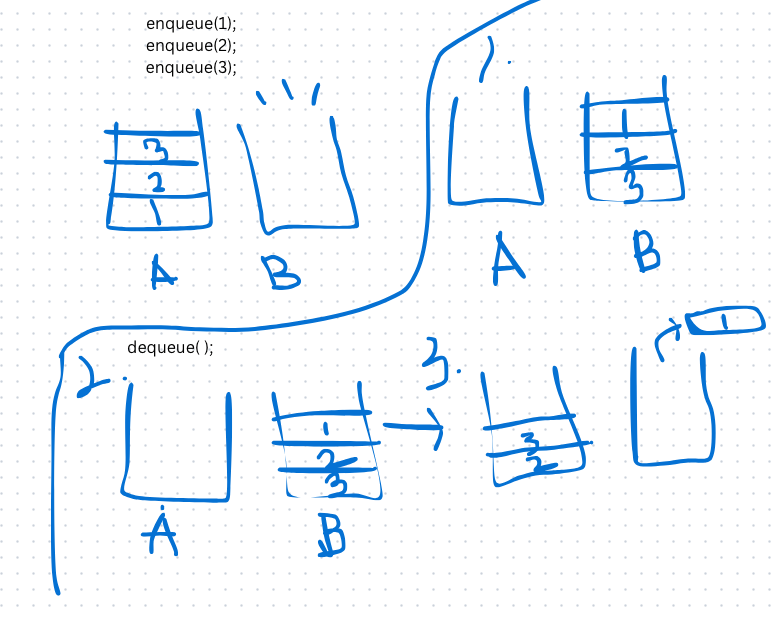 enqueue(1);
enqueue(2);
enqueue(3);
3
2
1
A
B
1.
1
2
3
A
B
2.
dequeue( );
A
1
2
3
B
3.
3
2
1